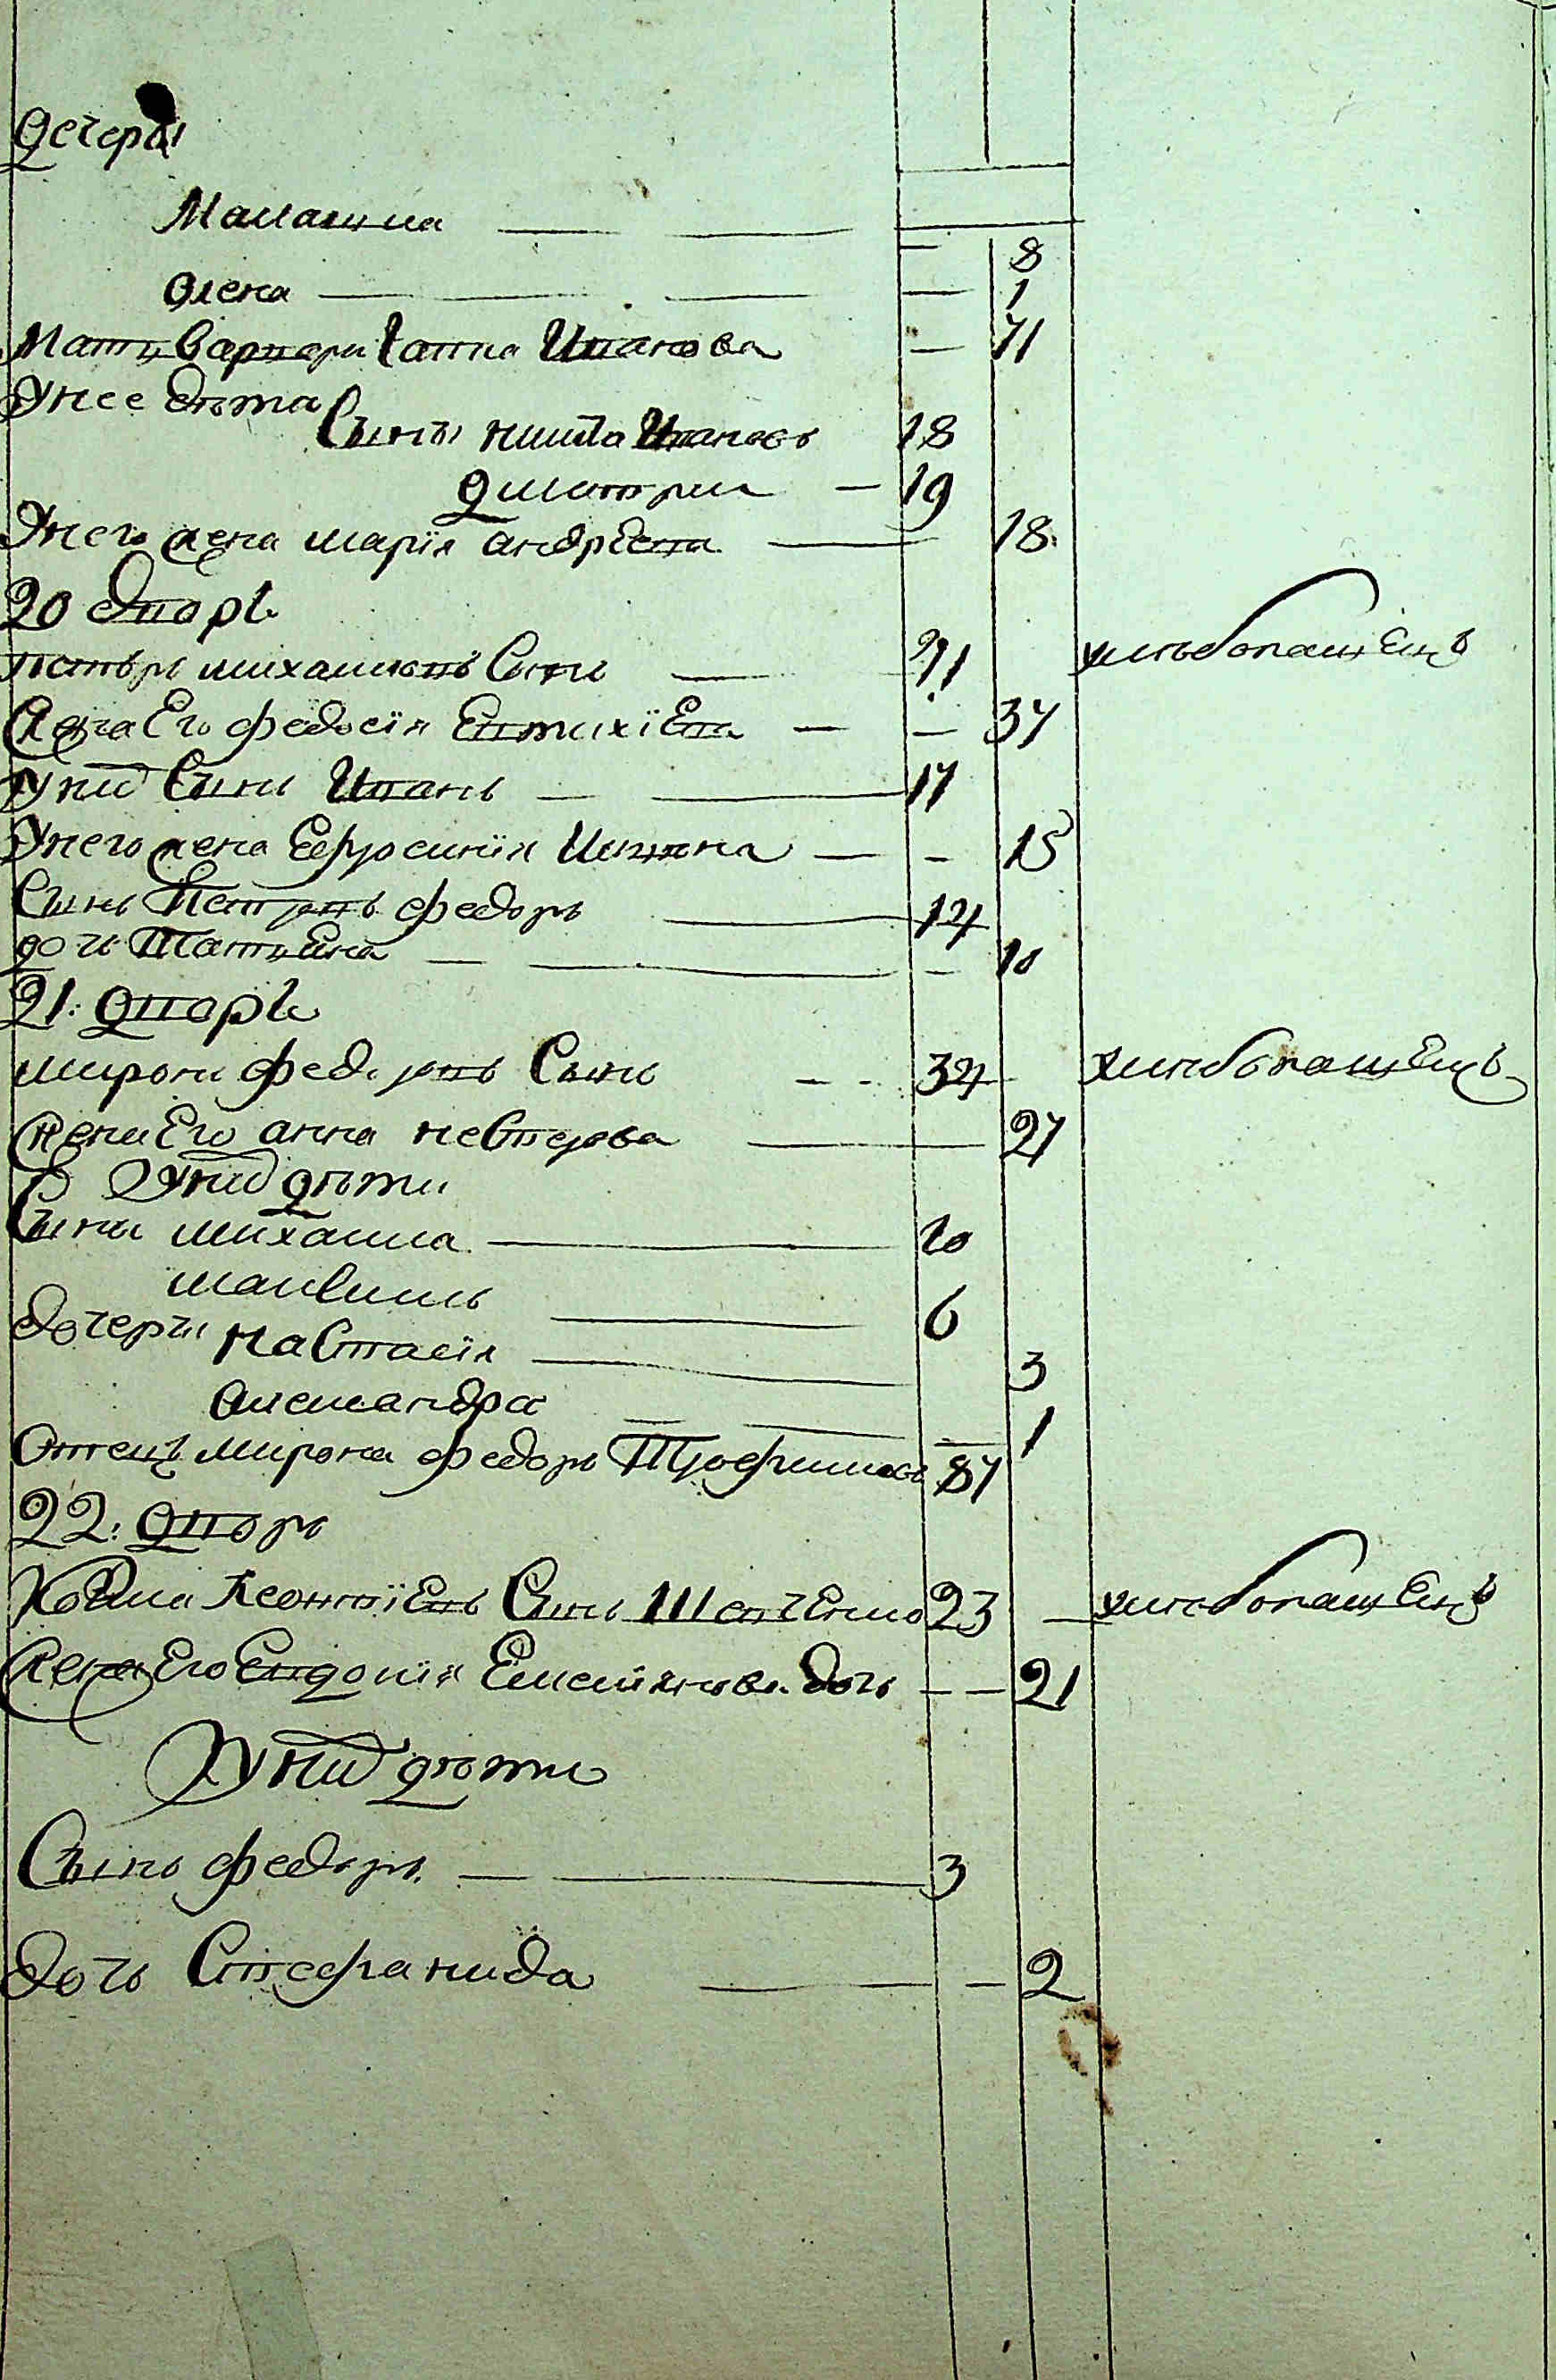 дочеры
Маланиа 8
олена 1
Мать Варвари Гапка Иванова 71
У нее дѣти
Сыны никита Ивановъ 18
дмитрии 19
У него жена мария андрѣева 18
20 дворъ
петръ михаиловъ Сынъ 41 хлѣбопашецъ
Жена Его федосія Евтихіева 37
у них Сынъ Иванъ 17
У него жена Ефросинія 15
Сынъ Петровъ федоръ 14
дочь Татьяна 10
21: дворъ
миронъ федоровъ Сынъ 34 хлѣбопашецъ
жена Его анна нестерова 27
У них дѣти
Сыны михаила 10
мансимъ 6
дочеры настасія 3
александра 1
Отецъ мирона федоръ Трофимовъ 87
22: дворъ
Козма Леонтіевъ Сынъ Шевченко 23 хлѣбопашецъ
Жена Его Евдокія Емелиянова дочь 21
У них дѣти
Сынъ федоръ 3
дочь Стефанида 2